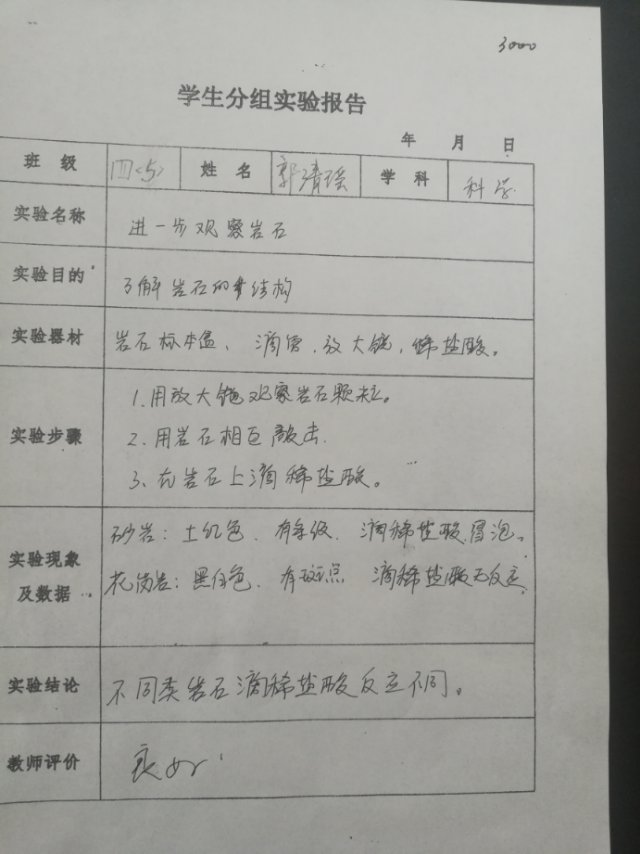 3000
学生分组实验报告
年 月 日
班 级 四<5> 姓 名 郭清瑶 学 科 科学
实验名称 进一步观察岩石
实验目的 了解岩石的结构
实验器材 岩石标本盒、滴管、放大镜、稀盐酸。
实验步骤 1.用放大镜观察岩石颗粒。
2.用岩石相互敲击.
3、在岩石上滴稀盐酸。
实验现象及数据 砂岩：土红色、有 滴稀盐酸冒泡。
花岗岩：黑白色、有斑点 滴稀盐酸无反应
实验结论 不同类岩石滴稀盐酸反应不同。
教师评价 良好